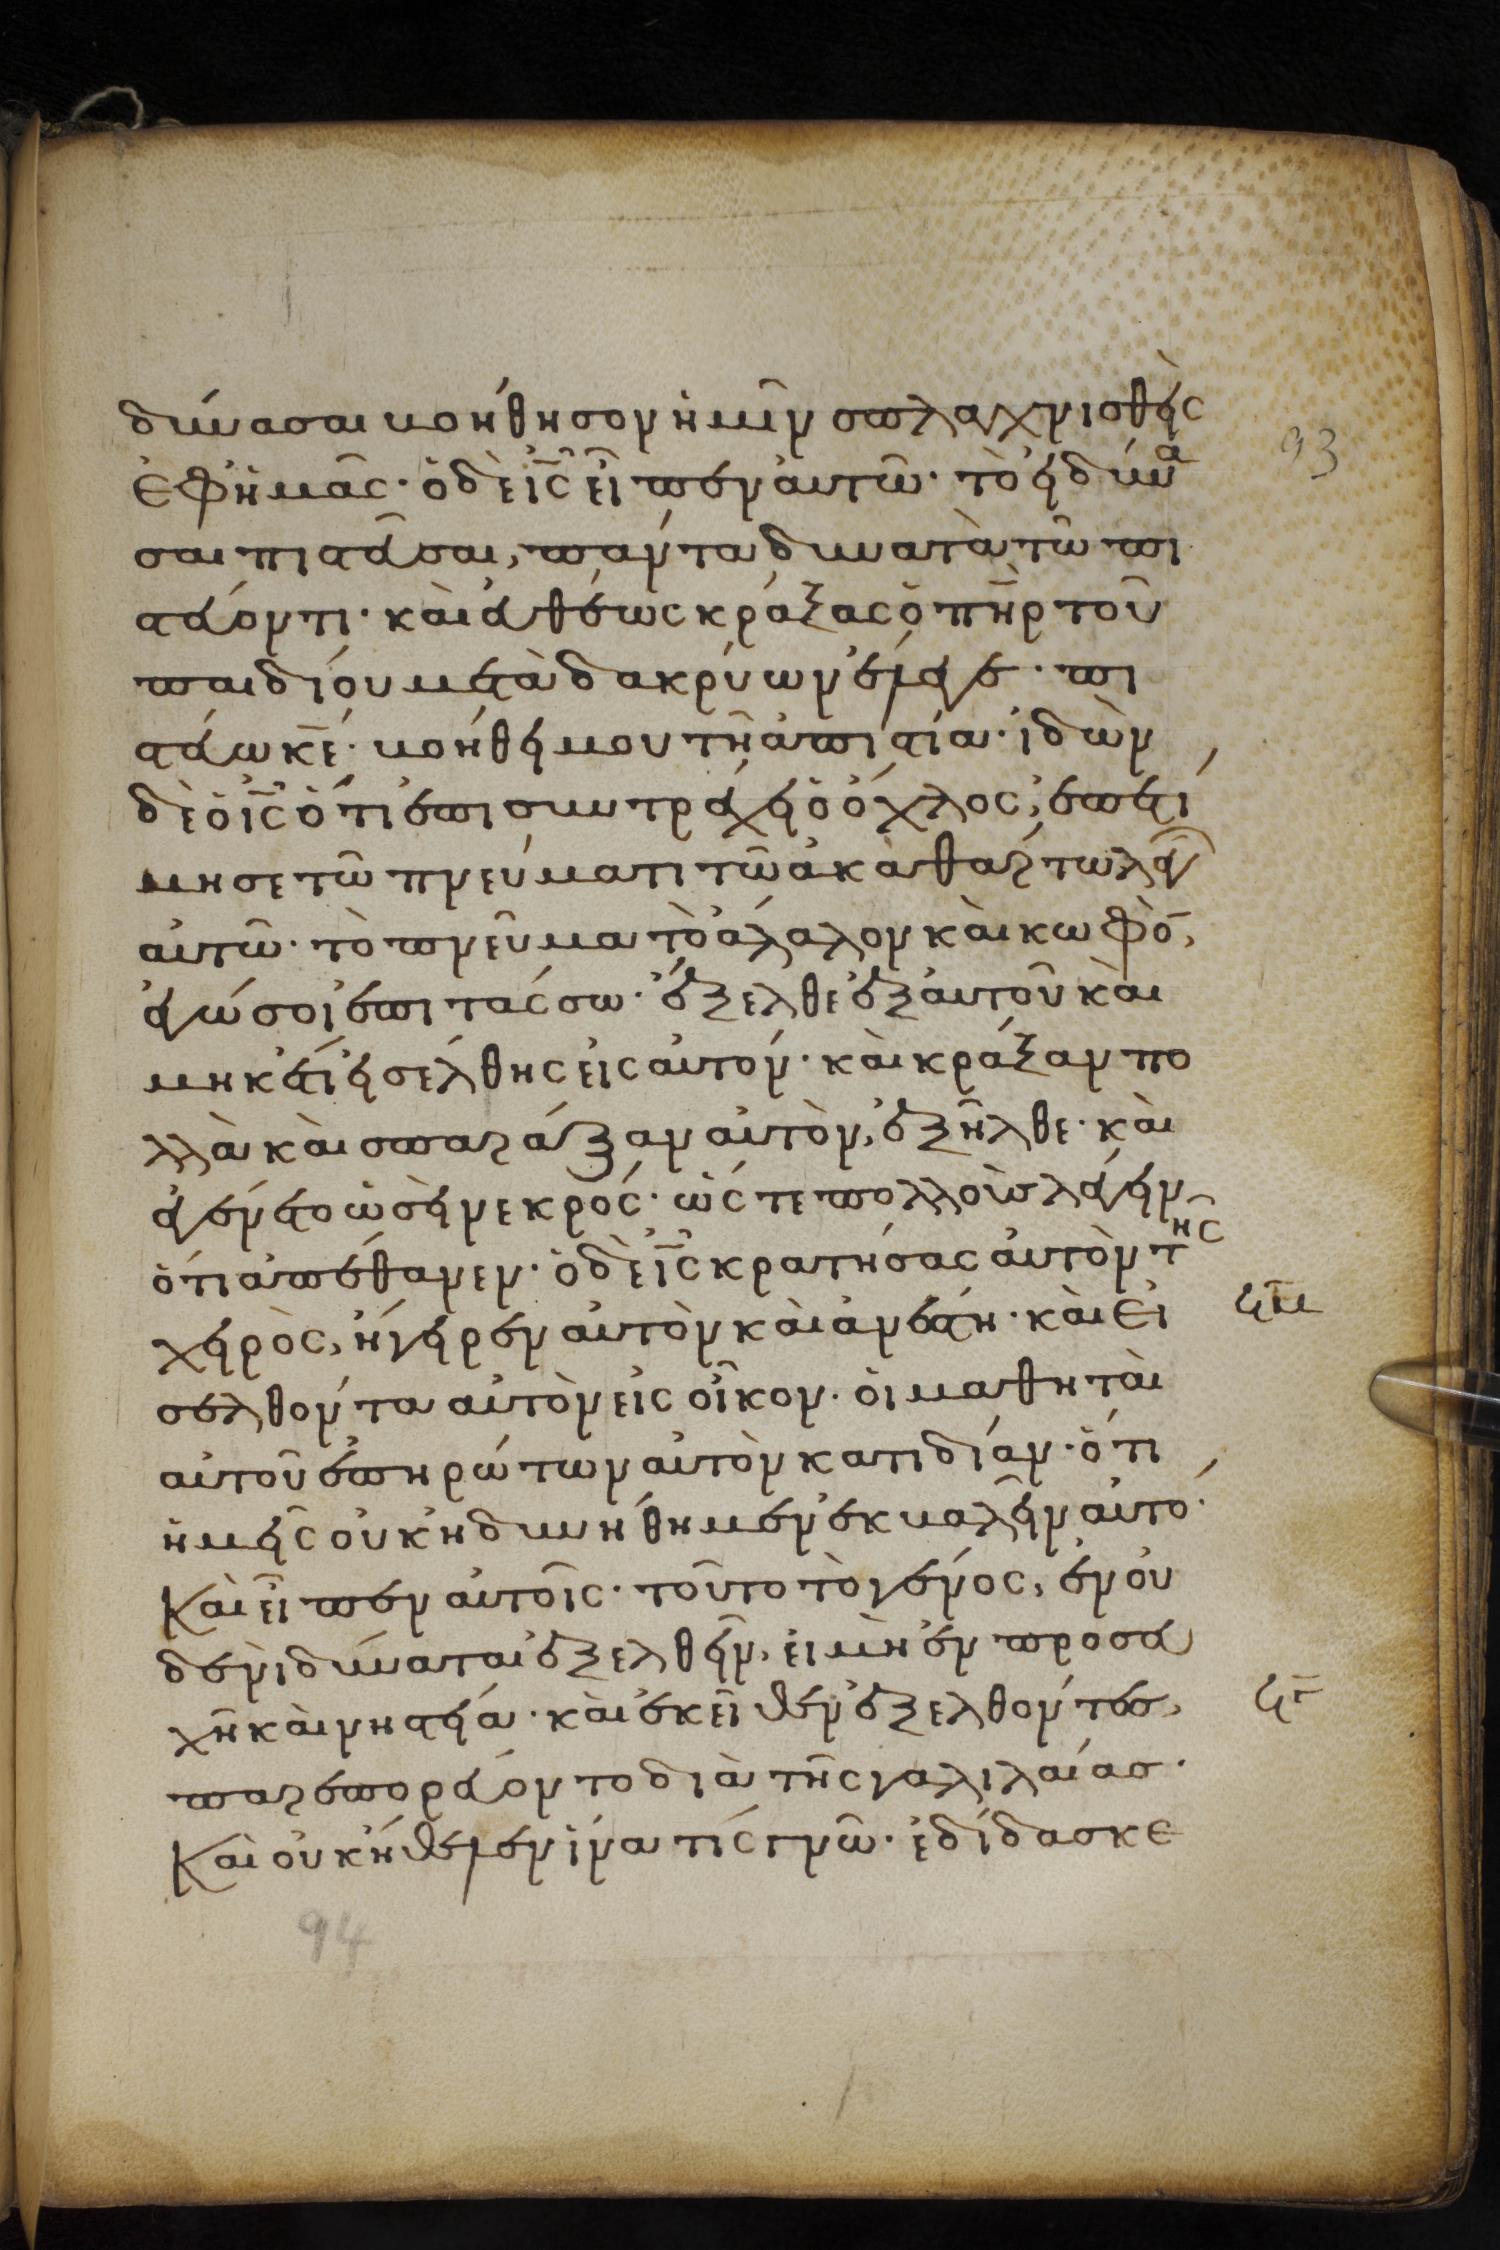 δύνασαι βοήθησον ἡμῖν σπλαγχνισθεὶς
ἐφ ἡμᾶς· ὁ δὲ ι̅ς̅ εἶπεν αὐτῶ· τὸ εἰ δύνα
σαι πιστεῦσαι, πάντα δυνατὰ τῶ πι
στεύοντι· καὶ εὐθέως κράξας ὁ π̅η̅ρ̅ τοῦ
παιδίου μετὰ δακρύων ἔλεγε· πι
στεύω κ̅ε̅· βοήθει μου τῆ ἀπιστία· ἰδὼν
δὲ ὁ ι̅ς̅ ὅτι ἐπισυντρέχει ὁ ὄχλος, ἐπετί
μησε τῶ πνεύματι τῶ ἀκαθάρτω λέγων
αὐτῶ· τὸ πνεῦμα τὸ ἄλαλον καὶ κωφὸν,
ἐγώ σοι ἐπιτάσσω· ἔξελθε ἐξ αὐτοῦ καὶ
μηκέτι εἰσέλθης εἰς αὐτόν· καὶ κράξαν πο
λλὰ καὶ σπαράξαν αὐτὸν, ἐξῆλθε· καὶ
ἐγένετο ὡσεὶ νεκρός· ὥστε πολλοὺς λέγειν
ὅτι ἀπέθανεν· ὁ δὲ ι̅ς̅ κρατήσας αὐτὸν τῆς
χειρὸς, ἤγειρεν αὐτὸν καὶ ἀνέστη· καὶ εἰ
σελθόντα αὐτὸν εἰς οἶκον· οἱ μαθηταὶ
αὐτοῦ ἐπηρώτων αὐτὸν κατιδίαν· ὅτι
ἡμεῖς οὐκ ἠδυνήθημεν ἐκβαλεῖν αὐτό·
Καὶ εἶπεν αὐτοῖς· τοῦτο τὸ γένος, ἐν οὐ
δενὶ δύναται ἐξελθεῖν, εἰ μὴ ἐν προσευ
χῆ καὶ νηστεία· καὶ ἐκεῖθεν ἐξελθόντες,
παρεπορεύοντο διὰ τῆς γαλιλαίας·
Καὶ οὐκ ἤθελεν ἵνα τίς γνῶ· ἐδίδασκε
93
94